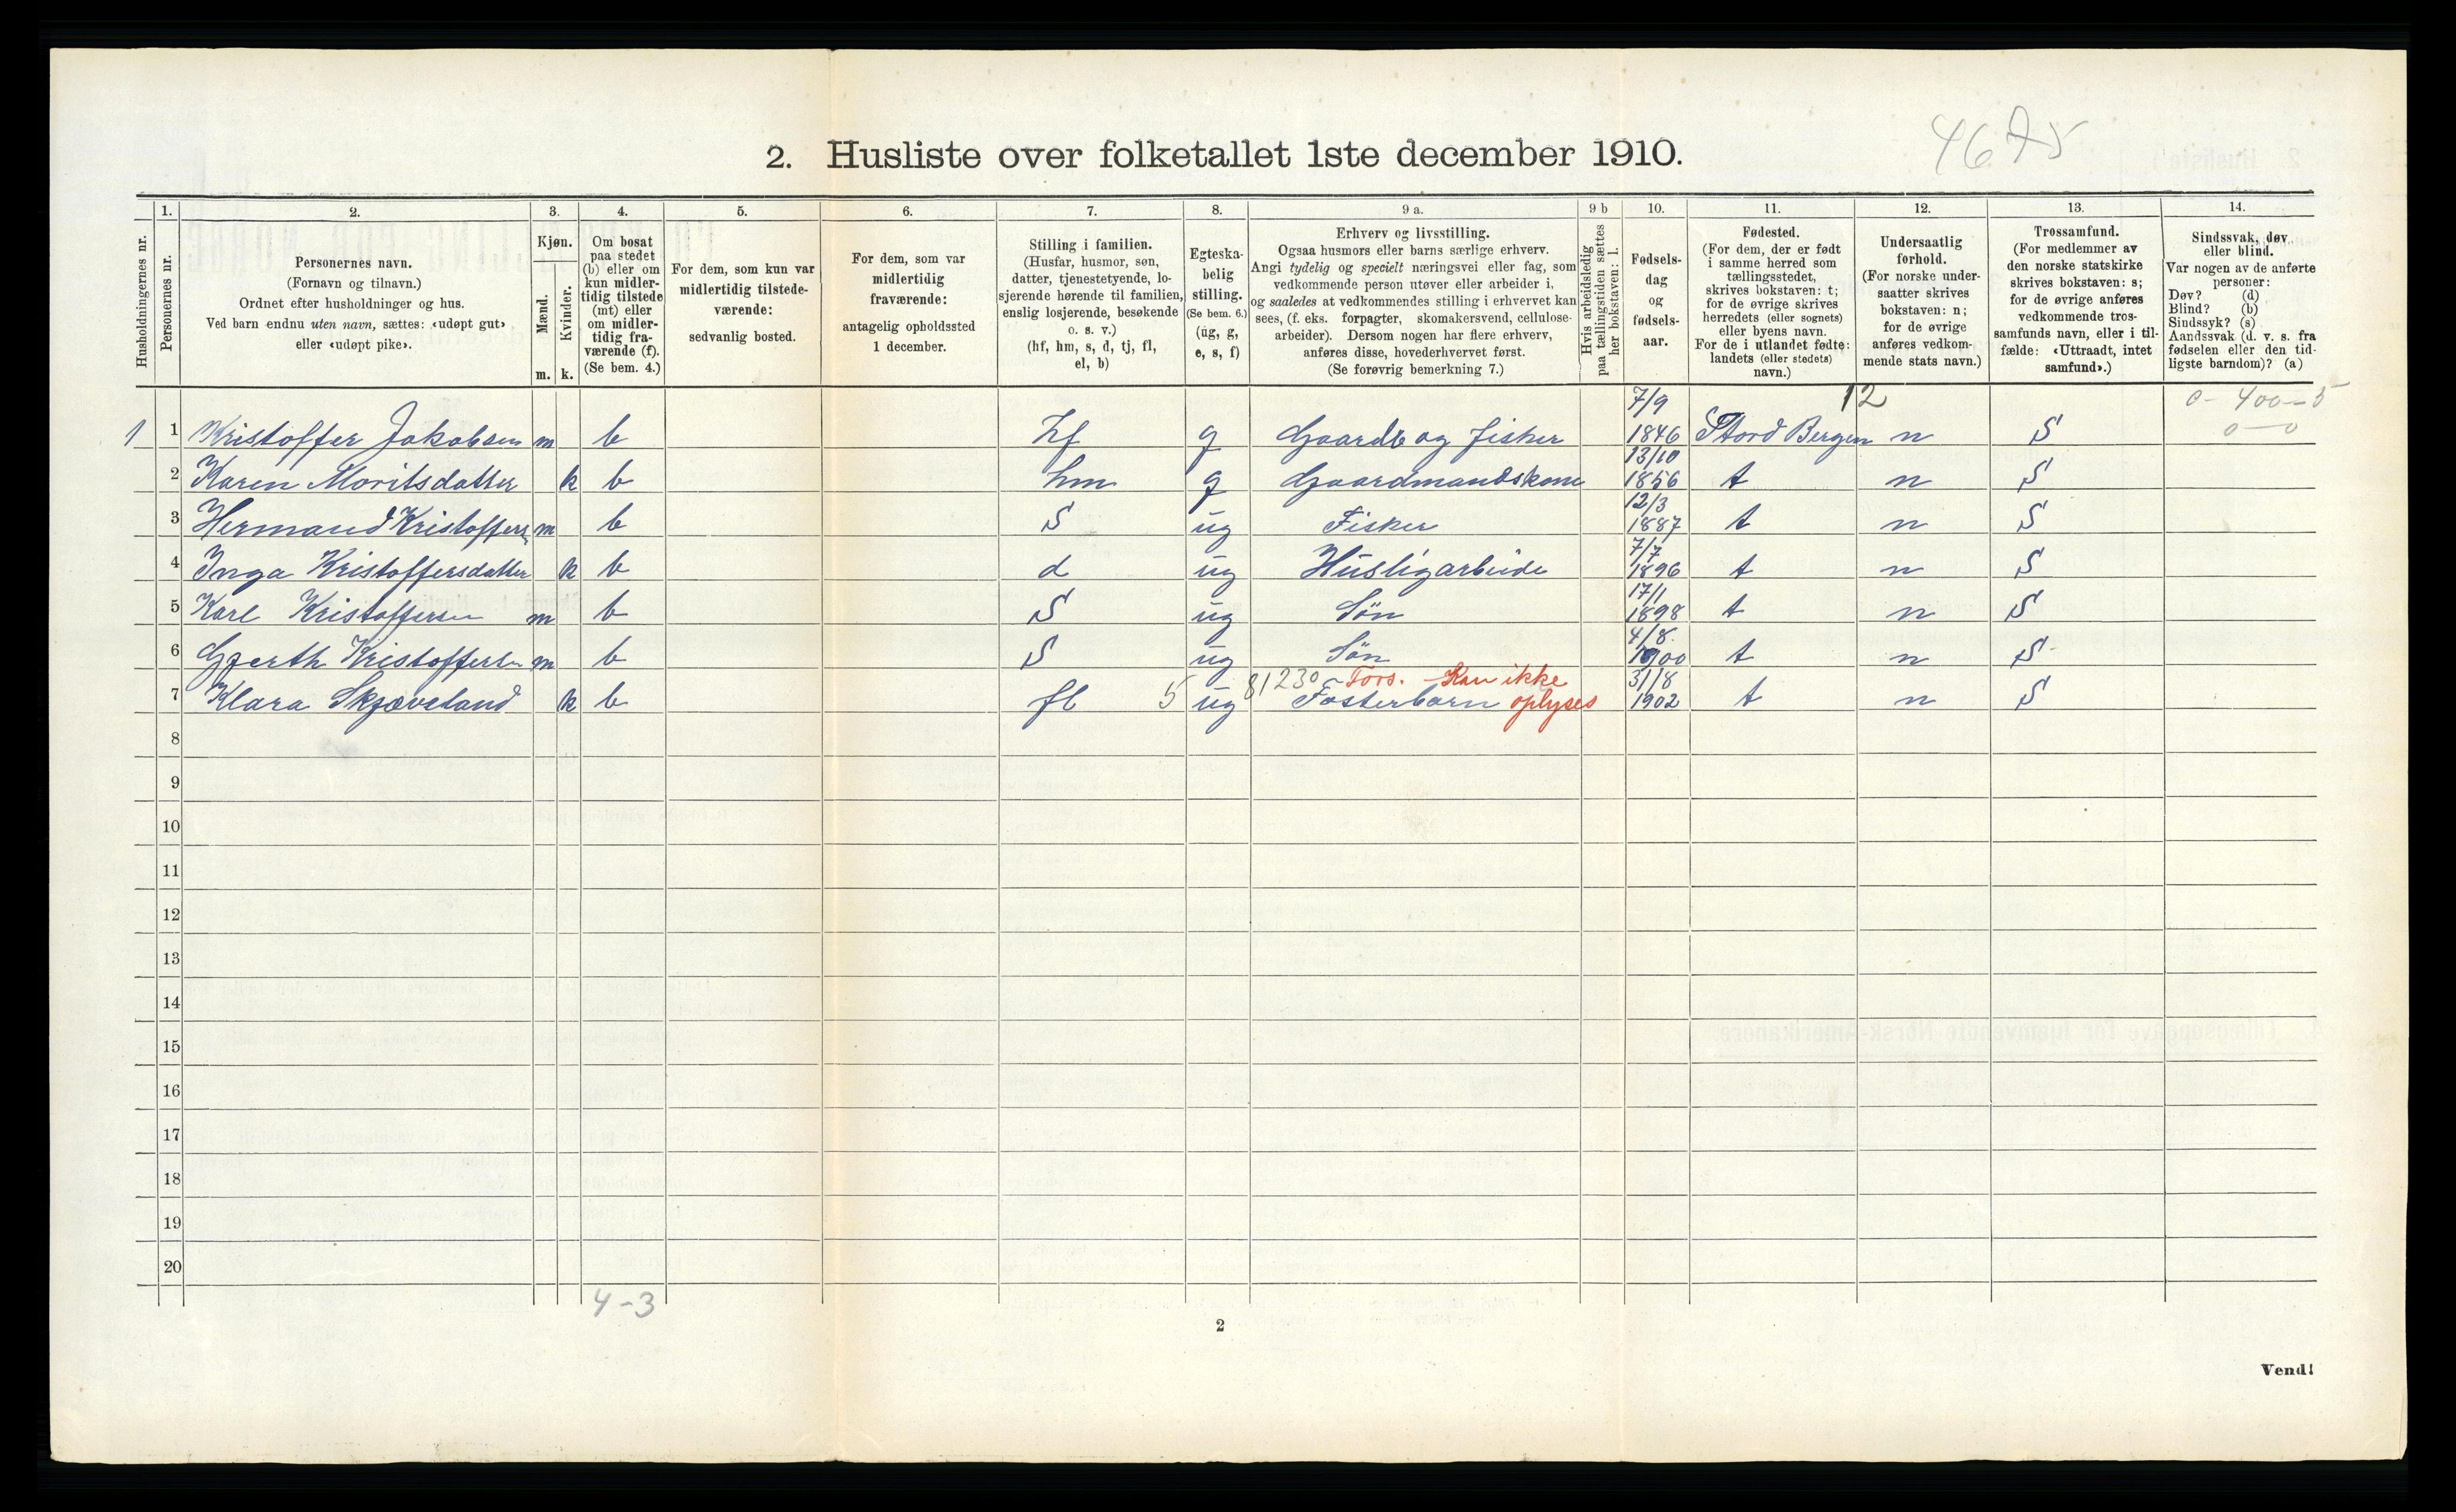 4675
2. Husliste over folketallet 1ste december 1910.
Husholdningernes nr.
1.
Personernes nr.
2.
Personernes navn.
(Fornavn og tilnavn.)
Ordnet efter husholdninger og hus.
Ved barn endnu uten navn, sættes: «udøpt gut»
eller «udøpt pike».
3.
Kjøn.
Mænd.
Kvinder.
m. k.
4.
Om bosat
paa stedet
(b) eller om
kun midler-
tidig tilstede
(mt) eller
om midler-
tidig fra-
værende (f).
(Se bem. 4.)
5.
For dem, som kun var
midlertidig tilstede-
værende:
sedvanlig bosted.
6.
For dem, som var
midlertidig
fraværende:
antagelig opholdssted
1 december.
7.
Stilling i familien.
(Husfar, husmor, søn,
datter, tjenestetyende, lo-
sjerende hørende til familien,
enslig losjerende, besøkende
o. s. v.)
(hf, hm, s, d, tj, fl,
el, b)
8.
Egteska-
belig
stilling.
(Se bem. 6.)
(ug, g,
e, s, f)
9 a.
Erhverv og livsstilling.
Ogsaa husmors eller barns særlige erhverv.
Angi tydelig og specielt næringsvei eller fag, som
vedkommende person utøver eller arbeider i,
og saaledes at vedkommendes stilling i erhvervet kan
sees, (f. eks. forpagter, skomakersvend, cellulose-
arbeider). Dersom nogen har flere erhverv,
anføres disse, hovederhvervet først.
(Se forøvrig bemerkning 7.)
9 b
Hvis arbeidsledig
paa tællingstiden sættes
her bokstaven: l.
10.
Fødsels-
dag
og
fødsels-
aar.
11.
Fødested.
(For dem, der er født
i samme herred som
tællingsstedet,
skrives bokstaven: t;
for de øvrige skrives
herredets (eller sognets)
eller byens navn.
For de i utlandet fødte:
landets (eller stedets)
navn.)
12.
Undersaatlig
forhold.
(For norske under-
saatter skrives
bokstaven: n;
for de øvrige
anføres vedkom-
mende stats navn.)
13.
Trossamfund.
(For medlemmer av
den norske statskirke
skrives bokstaven: s;
for de øvrige anføres
vedkommende tros-
samfunds navn, eller i til-
fælde: «Uttraadt, intet
samfund».)
14.
Sindssvak, døv
eller blind.
Var nogen av de anførte
personer:
Døv? (d)
Blind? (b)
Sindssyk? (s)
Aandssvak (d. v. s. fra
fødselen eller den tid-
ligste barndom)? (a)
7/9 12 0-400-5
1 1 Kristoffer Jakobsen m b hf g Gaardb og fisker 1846 Stord Bergen n S 0-0
13/10
2 Karen Moritsdatter k b hm g Gaardmandskone 1856 t n S
12/3
3 Hermand Kristoffers. m b S ug Fisker 1887 t n S
7/7
4 Inga Kristoffersdatter k b d ug Husligarbeide 1896 t n S
17/1
5 Karl Kristoffersen m b S ug Søn 1898 t n S
4/8
6 Gjerth Kristoffersen m b S ug Søn 1900 t n S
81230 - Fors. - Kan ikke 31/8
7 Klara Skjæveland k b fl 5 ug Fosterbarn oplyses 1902 t n S
8
9
10
11
12
13
14
15
16
17
18
19
20
4-3
2
Vend!